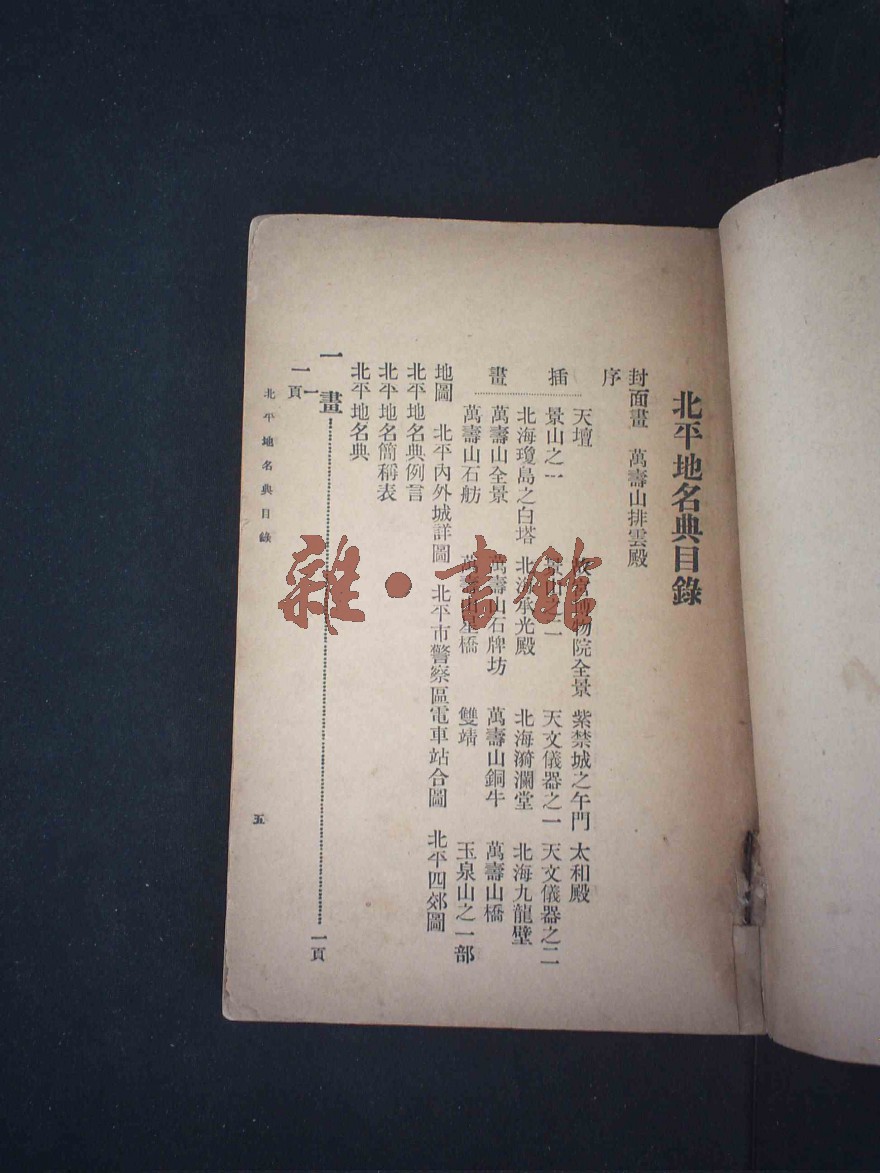 北平地名典目錄
封面畫　萬壽山排雲殿
序
插畫
天壇　故宮博物院全景　紫禁城之午門　太和殿
景山之一　景山之二　天文儀器之一　天文儀器之二
北海瓊島之白塔　北海承光殿　北海漪瀾堂　北海九龍壁
萬壽山全景　萬壽山石牌坊　萬壽山銅牛　萬壽山橋
萬壽山石舫　萬壽山星橋　雙靖　玉泉山之一部
地圖　北平內外城詳圖　北平市警察區電車站合圖　北平四郊圖
北平地名典例言
北平地名簡稱表
北平地名典
一畫…………一頁
一　一頁
北平地名典目錄
五
雜·書館